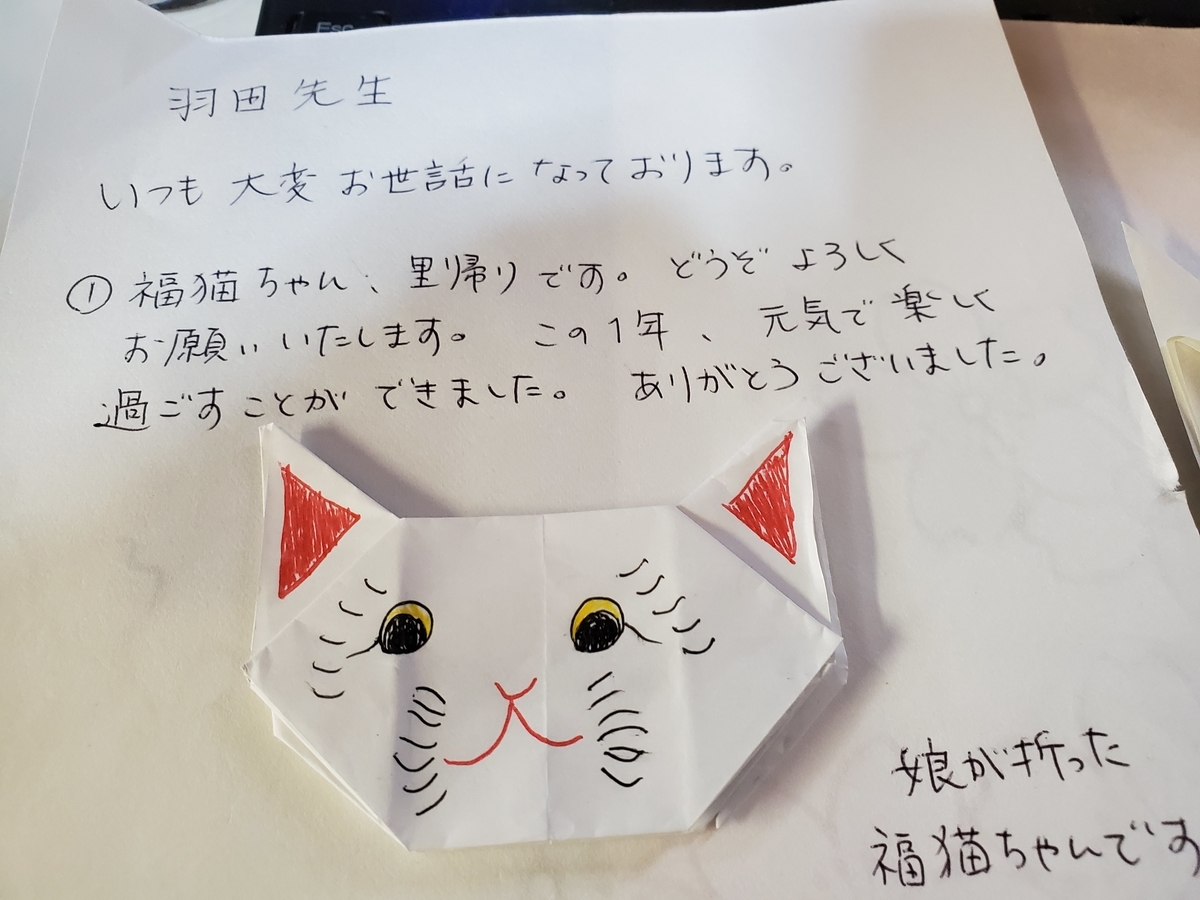 Esc
羽田 先生
いつも 大変 お世話に なっております。
① 福猫ちゃん、里帰りです。 どうぞ よろしく
お願い いたします。 この1年、元気で楽しく
過ごすことが できました。 ありがとうございました。
娘が折った
福猫ちゃんです